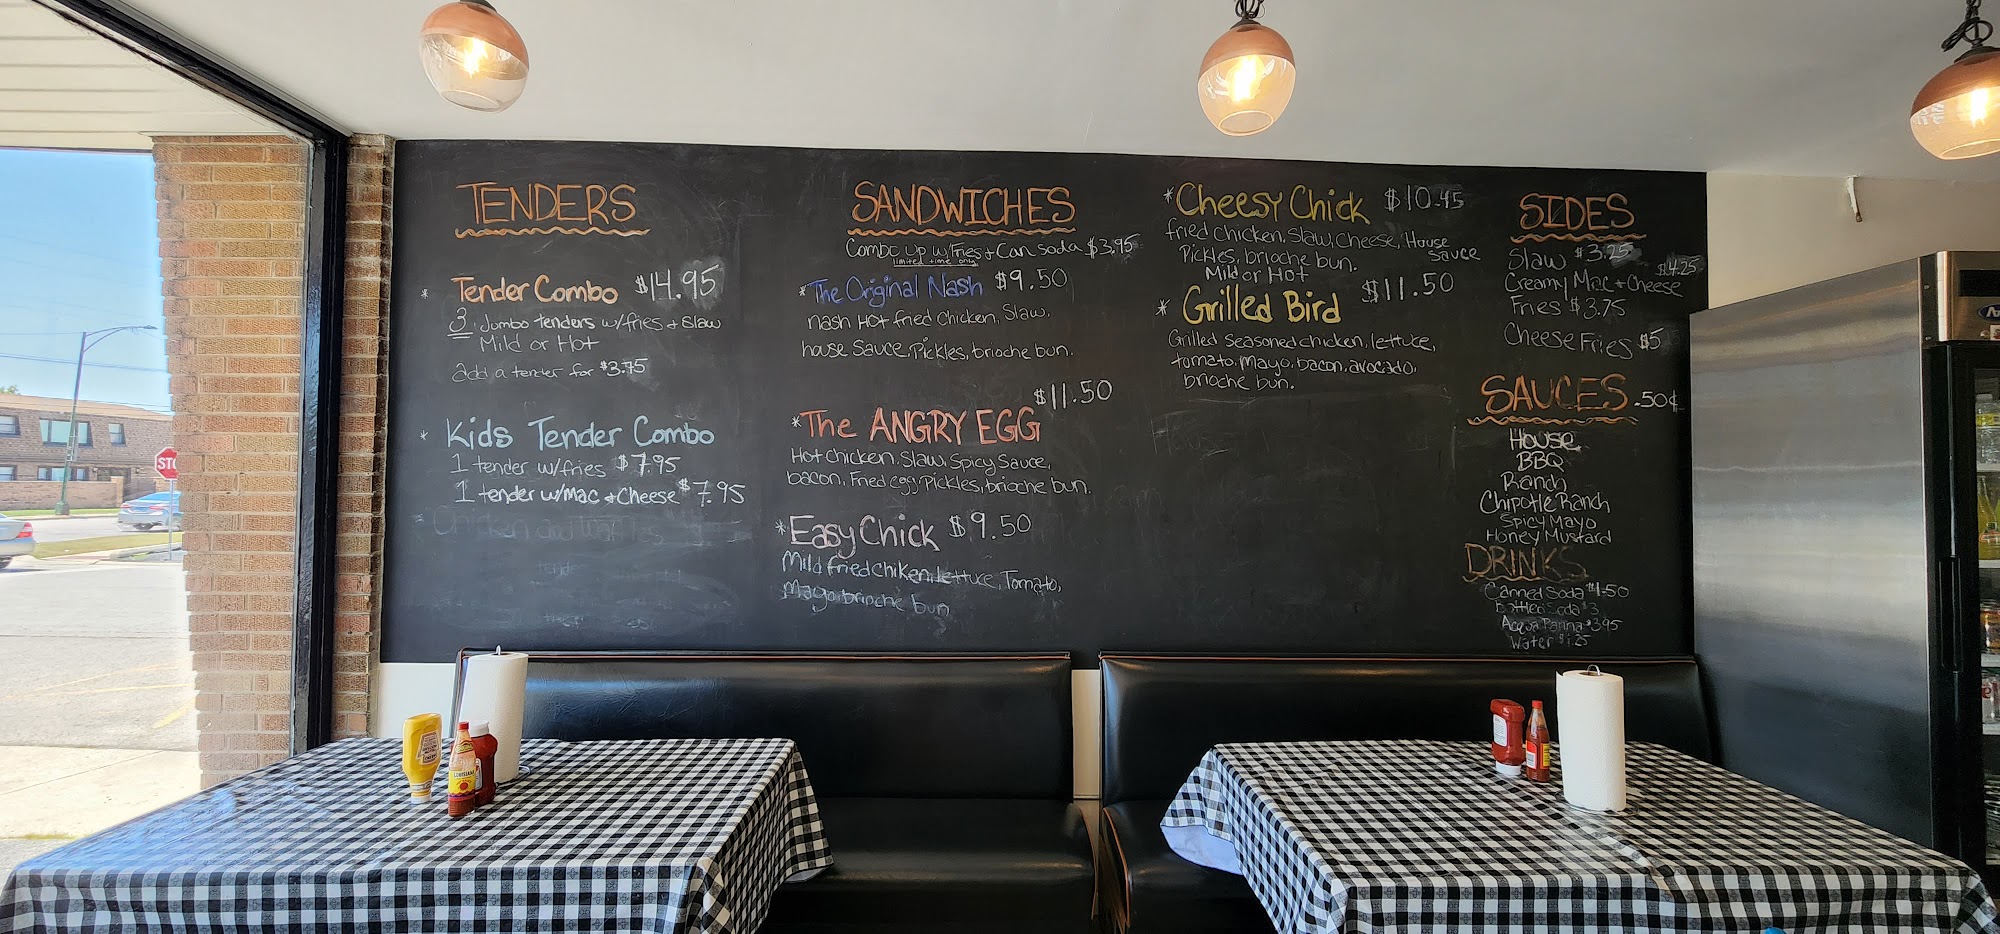 TENDERS
* Tender Combo $14.95
3 Jumbo tenders w/fries + Slaw
Mild or Hot
add a tender for $3.75
* Kids Tender Combo
1 tender w/fries $7.95
1 tender w/Mac + Cheese $7.95
Chicken and Waffles
SANDWICHES
Combo Up w/Fries + Can soda $3.95
limited time only
* The Original Nash $9.50
Nash Hot fried Chicken, Slaw,
house Sauce, Pickles, brioche bun.
$11.50
* The ANGRY EGG
Hot Chicken, Slaw, Spicy Sauce,
bacon, Fried egg, Pickles, brioche bun.
* Easy Chick $9.50
Mild fried chiken, lettuce, Tomato,
Mayo brioche bun
* Cheesy Chick $10.45
fried chicken, Slaw, Cheese, House
Sauce
Pickles, brioche bun.
Mild or Hot
* Grilled Bird $11.50
Grilled Seasoned chicken, lettuce,
tomato, mayo, bacon, avocado,
brioche bun.
SIDES
Slaw $3.25
$4.25
Creamy Mac + Cheese
Fries $3.75
Cheese Fries $5
SAUCES .50¢
House
BBQ
Ranch
Chipotle Ranch
Spicy Mayo
Honey Mustard
DRINKS
Canned Soda $1.50
Bottled Soda $3
Acqua Panna $3.95
Water $1.25
STO